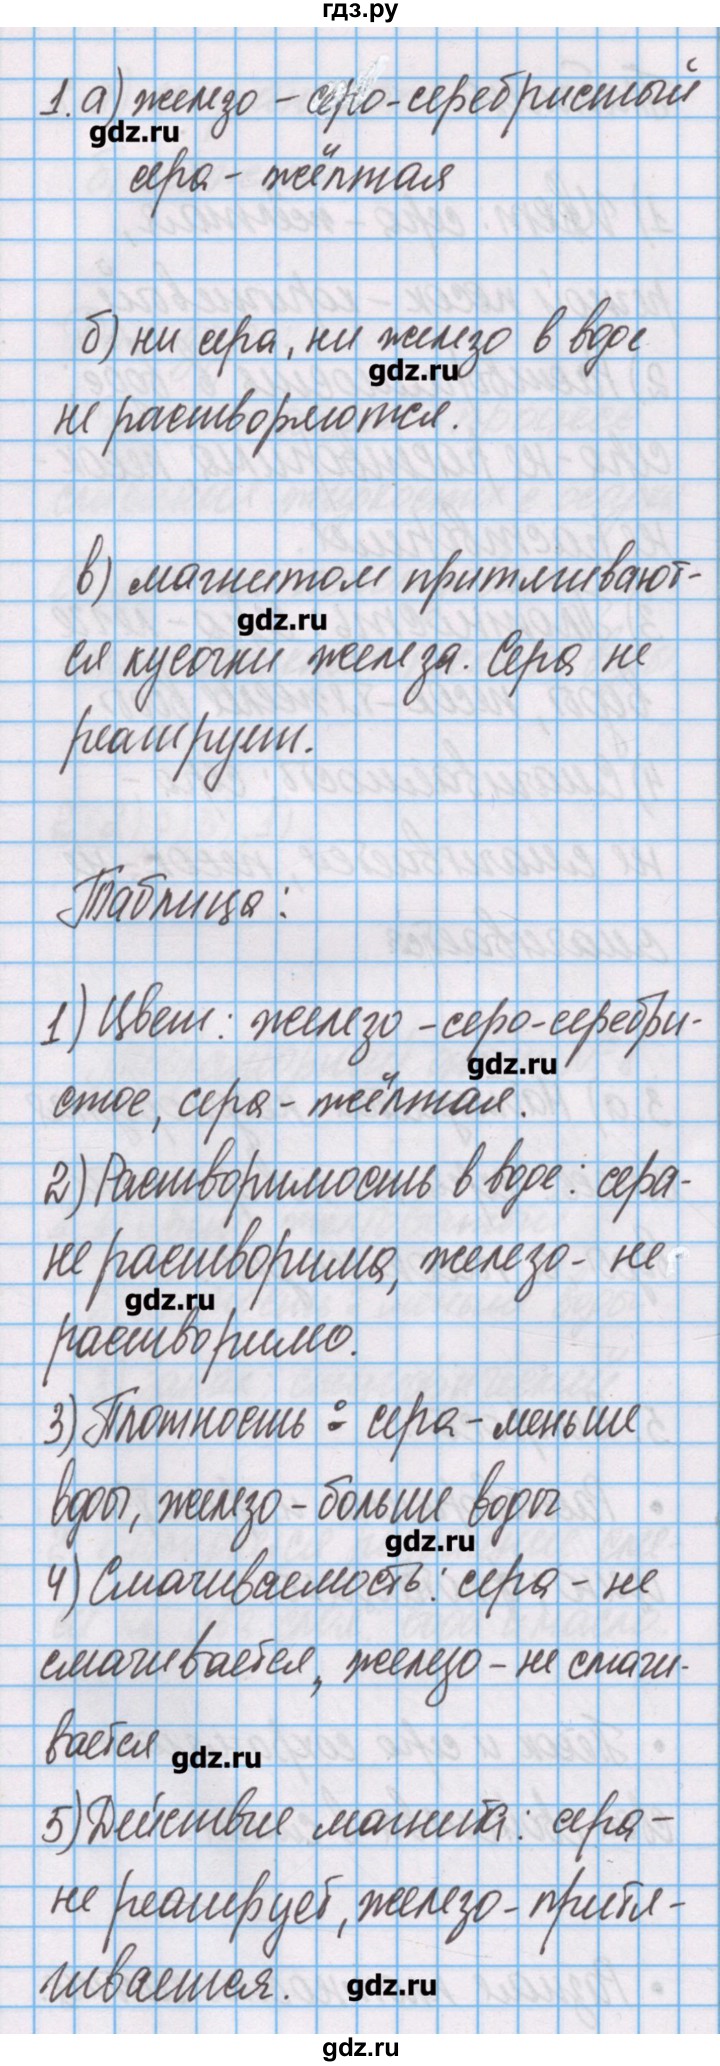 гдз.ру
1. а) железо - серо-серебристый
gdz.ru
сера - жёлтая
б) ни сера, ни железо в воде
gdz.ru
не растворяются.
в) магнитом притягивают-
gdz.ru
ся кусочки железа. Сера не
реагирует.
Таблица:
1) Цвет: железо - серо-серебри-
gdz.ru
стое, сера - жёлтая.
2) Растворимость в воде: сера-
не растворима, железо - не
gdz.ru
растворимо.
3) Плотность: сера - меньше
воды, железо - больше воды
gdz.ru
4) Смачиваемость: сера - не
смачивается, железо - не смачи-
вается
gdz.ru
5) Действие магнита: сера -
не реагирует, железо - притя-
гивается.
gdz.ru
gdz.ru